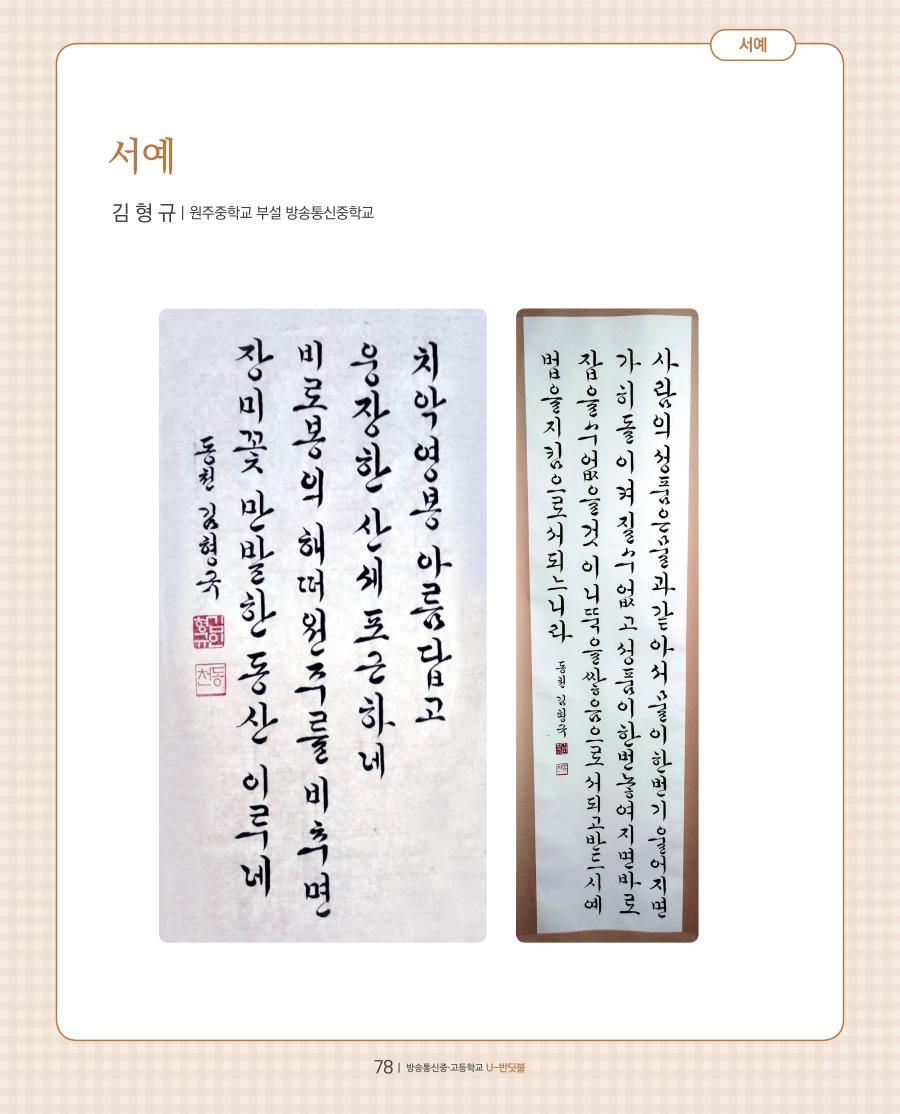 서예
서예
김형규 | 원주중학교 부설 방송통신중학교
치악영봉 아름답고
웅장한 산세 포근하네
비로봉의 해떠 원주를 비추면
장미꽃 만발한 동산 이루네
동천 김형규
사람의성품은물과같아서물이한번기울어지면
가히돌이켜질수없고성품이한번놓여지면바로
잡을수없을것이니뚝을쌓음으로서되고반드시예
법을지킴으로서되느니라
동천 김형규
78 | 방송통신중·고등학교 U-반딧불